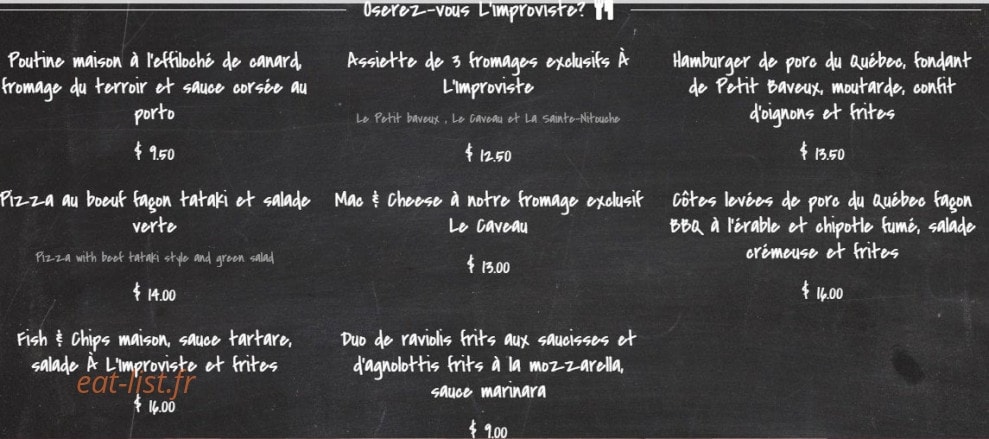 Oserez-vous L'improviste?
Poutine maison à l'effiloché de canard,
fromage du terroir et sauce corsée au
porto
$ 9.50
Assiette de 3 fromages exclusifs À
L'Improviste
Le Petit baveux , Le Caveau et La Sainte-Nitouche
$ 12.50
Hamburger de porc du Québec, fondant
de Petit Baveux, moutarde, confit
d'oignons et frites
$ 13.50
Pizza au boeuf façon tataki et salade
verte
Pizza with beef tataki style and green salad
$ 14.00
Mac & Cheese à notre fromage exclusif
Le Caveau
$ 13.00
Côtes levées de porc du Québec façon
BBQ à l'érable et chipotle fumé, salade
crémeuse et frites
$ 16.00
Fish & Chips maison, sauce tartare,
salade À L'Improviste et frites
eat-list.fr
$ 16.00
Duo de raviolis frits aux saucisses et
d'agnolottis frits à la mozzarella,
sauce marinara
$ 9.00